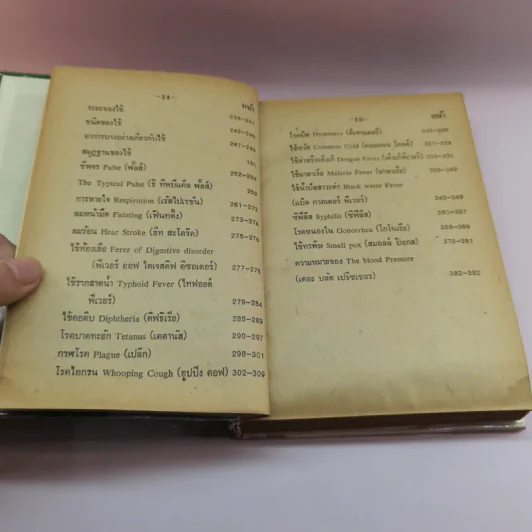 -14-
หน้า
ระยะของไข้
ชนิดของไข้ 242-246
อาการบางอย่างเกี่ยวกับไข้ 247-249
สมุฏฐานของไข้
ชีพจร Pulse (พั้ลส์) 252-258
The Typical Pulse (ธี ทิพปิแค็ล พั้ลส์) 259
การหายใจ Respiration (เร้สไปเรชั่น) 261-272
ลมหน้ามืด Fainting (เฟ้นทติง) 273-274
ลมร้อน Hear Stroke (ฮีท สะโตร๊ค) 275-275
ไข้ท้องเสีย Ferer of Digestive disorder
(พีเวอร์ ออฟ ไดเจสตีฟ ดิซอเดอร์) 277-278
ไข้รากสาดน้ำ Typhoid Fever (ไทฟอยด์
พีเวอร์) 279-284
ไข้คอตีบ Diphtheria (ดิฟธีเรีย) 285-289
โรคบาดทะยัก Tetanus (เตตานัส) 290-297
กาฬโรค Plague (เปล๊ก) 298-301
โรคไอกรน Whooping Cough (ฮูปปิ่ง คอฟ) 302-309
หน้า
โรคบิด Dysentary (ดิเซนเตอรี่)
ไข้หวัด Common Cold (คอมมอน โคลด์)
Dengue Fever
ไข้มาลาเรีย Malaria Fever (มาลาเรีย)
ไข้น้ำปัสสาวะดำ Black water Fever
(แบ๊ล กวอเตอร์ พีเวอร์) 343-349
ซิฟิลิส Syphilis (ซิฟิลิส) 350-357
โรคหนองใน Gonorrhoea (โกโนเรีย) 358-369
ไข้ทรพิษ Small pox (สมอลล์ ป๊อกส) 370-381
ความหมายของ The blood Pressure
(เดอะ บลัด เปร๊ซเชอร์) 382-392